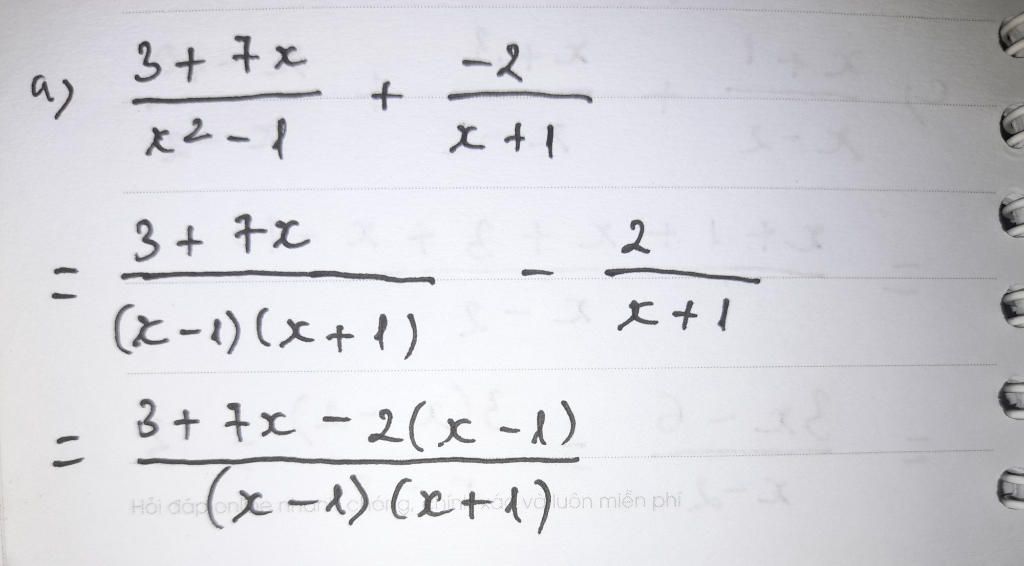 a) (3 + 7x)/(x² - 1) + (-2)/(x + 1)
= (3 + 7x)/((x - 1)(x + 1)) - 2/(x + 1)
= (3 + 7x - 2(x - 1))/((x - 1)(x + 1))
Hỏi đáp online nhanh chóng, chính xác và luôn miễn phí